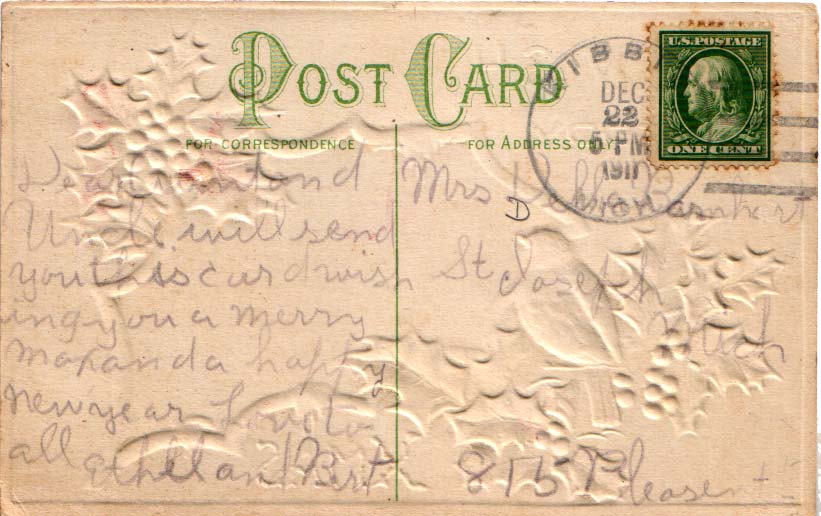 POST CARD
FOR CORRESPONDENCE
FOR ADDRESS ONLY
U.S. POSTAGE
ONE CENT
DEC
22
5 PM
MICH
Dear aunt and
Uncle, will send
you this card wish
ing you a merry
maxand a happy
new year love to
all Ethel and Bert
Mrs
D
St Joseph
Mich
815 Pleasent